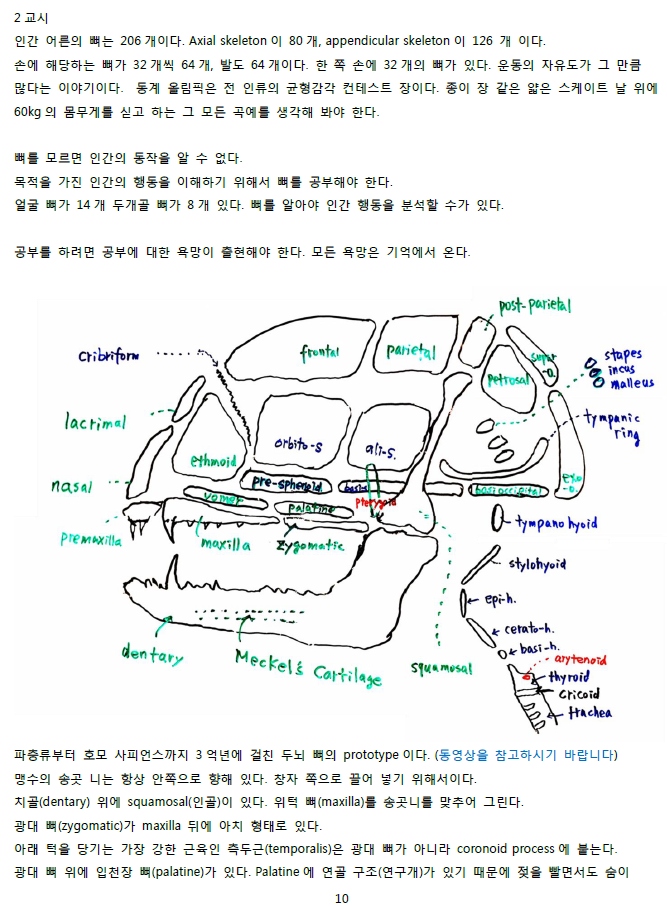 2 교시
인간 어른의 뼈는 206 개이다. Axial skeleton 이 80 개, appendicular skeleton 이 126 개 이다.
손에 해당하는 뼈가 32 개씩 64 개, 발도 64 개이다. 한 쪽 손에 32 개의 뼈가 있다. 운동의 자유도가 그 만큼
많다는 이야기이다. 동계 올림픽은 전 인류의 균형감각 컨테스트 장이다. 종이 장 같은 얇은 스케이트 날 위에
60kg 의 몸무게를 싣고 하는 그 모든 곡예를 생각해 봐야 한다.
뼈를 모르면 인간의 동작을 알 수 없다.
목적을 가진 인간의 행동을 이해하기 위해서 뼈를 공부해야 한다.
얼굴 뼈가 14 개 두개골 뼈가 8 개 있다. 뼈를 알아야 인간 행동을 분석할 수가 있다.
공부를 하려면 공부에 대한 욕망이 출현해야 한다. 모든 욕망은 기억에서 온다.
post-parietal
cribriform
frontal
parietal
petrosal
supra-o.
stapes
incus
malleus
tympanic ring
lacrimal
ethmoid
orbito-s
ali-s.
nasal
vomer
pre-sphenoid
basi-s
pterygoid
palatine
basioccipital
exo-o.
premaxilla
maxilla
zygomatic
tympanohyoid
stylohyoid
epi-h.
cerato-h.
basi-h.
arytenoid
thyroid
cricoid
trachea
dentary
Meckel's Cartilage
squamosal
파충류부터 호모 사피언스까지 3 억년에 걸친 두뇌 뼈의 prototype 이다. (동영상을 참고하시기 바랍니다)
맹수의 송곳 니는 항상 안쪽으로 향해 있다. 창자 쪽으로 끌어 넣기 위해서이다.
치골(dentary) 위에 squamosal(인골)이 있다. 위턱 뼈(maxilla)를 송곳니를 맞추어 그린다.
광대 뼈(zygomatic)가 maxilla 뒤에 아치 형태로 있다.
아래 턱을 당기는 가장 강한 근육인 측두근(temporalis)은 광대 뼈가 아니라 coronoid process 에 붙는다.
광대 뼈 위에 입천장 뼈(palatine)가 있다. Palatine 에 연골 구조(연구개)가 있기 때문에 젖을 빨면서도 숨이
10